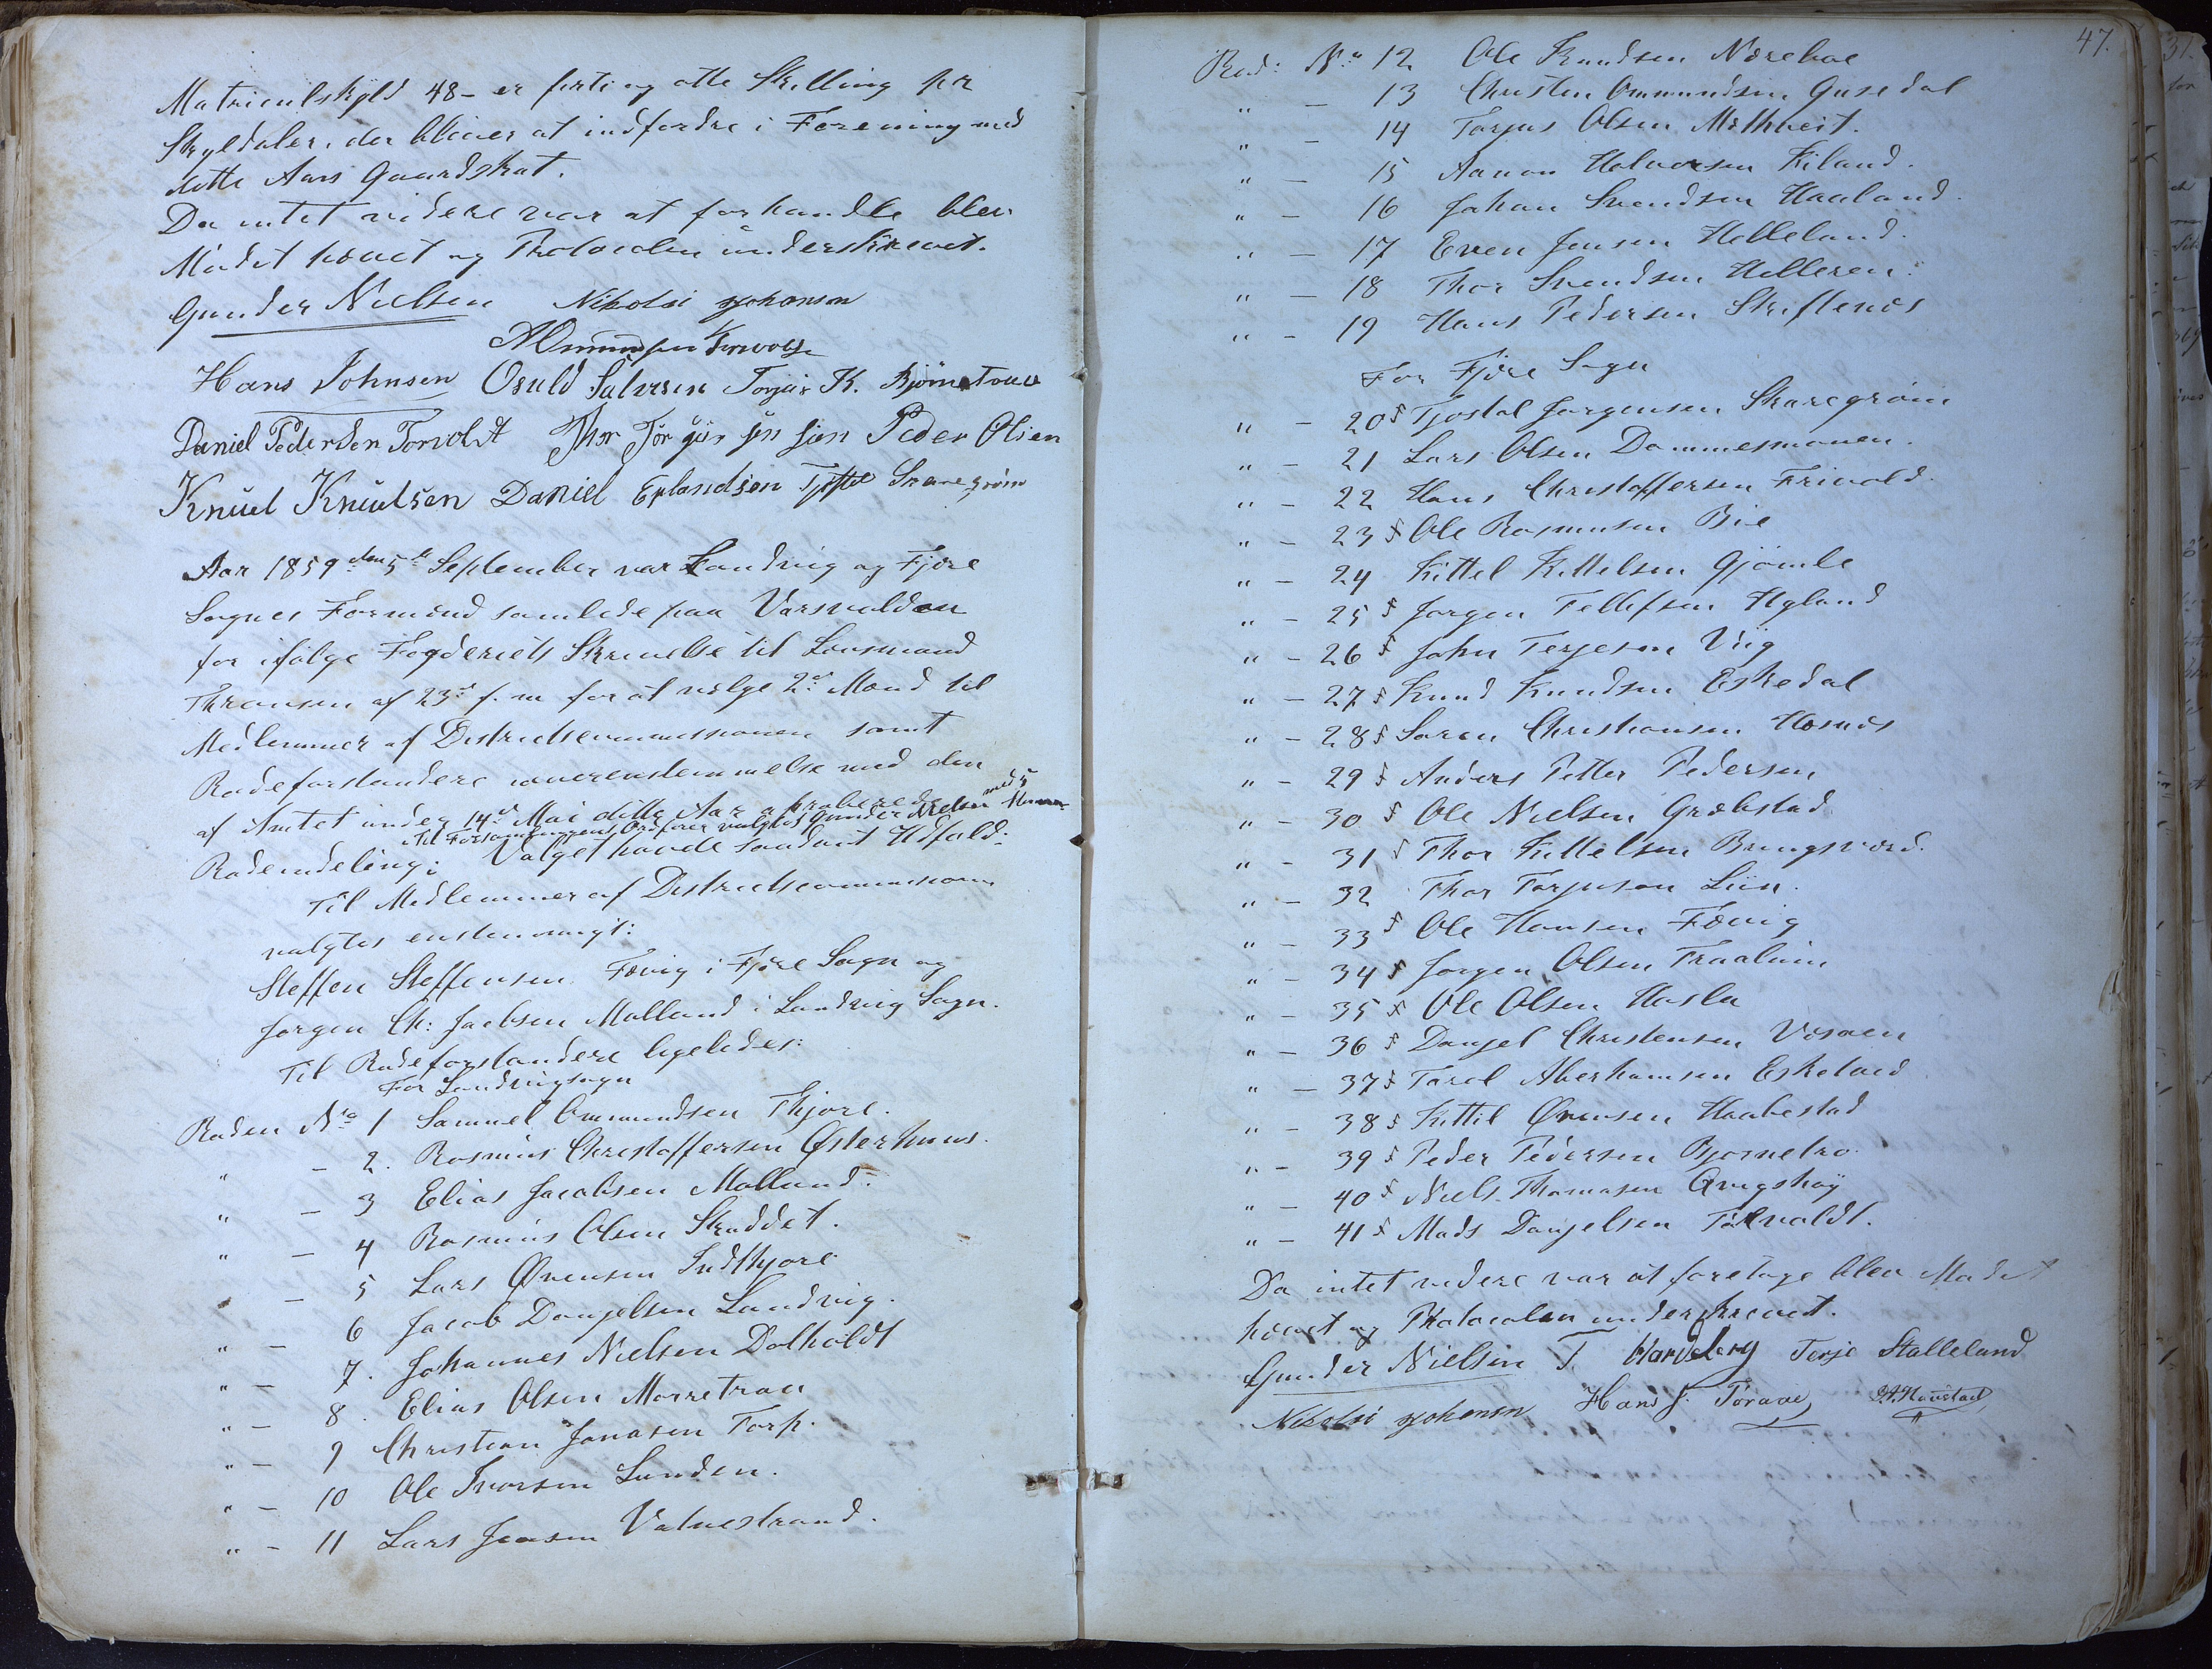 Matriculskyld 48 - er firti og otte Skilling pr
Skyldaler, der bliver at indfordre i Forening med
dette Aars Gaardskat.
Da intet videre var at forhandle blev
Mødet hævet og Protocolen underskrevet.
Gunder Nielsen Nikolai Johanson
Hans Johnsen Osuld Salvesen Torjus K. Bjørnetrae
Daniel Pedersen Torvoldt Thor Torgiis Peder Olsen
Knud Knudsen Daniel Erlandsen Tjøstel Skaregrøm
Aar 1859 den 5te September var Landvig og Fjære
Sognes Formænd samlede paa Varsvolden
for ifølge Fogderiets Skrivelse til Lensmand
af 23de f. m for at vælge 2de Mænd til
Medlemmer af Districtscommissionen samt
Rodeforstandere i overenstemmelse med den
af Amtet under 14de Mai dette Aar approberede
Til Forsamlingens Ordfører valgtes Gunder Nielsen med 5 Stemmer
Rodeindeling; Valget havde saadant Udfald:
Til Medlemmer af Districtscommissionen
valgtes enstemmigt:
Steffen Steffensen Fævig i Fjære Sogn og
Jørgen Ch: Jacobsen Molland i Landvig Sogn.
Til Rodeforstandere ligeledes:
For Landvigsogn
Roden No 1 Samuel Ommundsen Skjore.
" - 2. Rasmus Christoffersen Østerhuus.
" - 3 Elias Jacobsen Molland.
" - 4 Rasmus Olsen Skraddet.
" - 5 Lars Ørensen Indtkjore
" - 6 Jacob Danjelsen Landvig.
" - 7. Johannes Nielsen Dolholdt
" - 8. Elias Olsen Morretraa
" - 9 Christian Jonasen Torp.
" - 10 Ole Ivarsen Lunden.
" - 11 Lars Jensen Vatnestrand.
47.
Rod: No 12 Ole Knudsen Nærebøe
" - 13 Christen Ommundsen Gusedal
" - 14 Torjus Olsen Møthveit.
" - 15 Aanon Halvorsen Kiland.
" - 16 Johan Svendsen Haaland.
" - 17 Even Jensen Helleland.
" - 18 Thor Svendsen Helleren.
" - 19 Hans Pedersen Skiftenes
For Fjære Sogn
" - 20 Tjostol Jørgensen Skaregrøm
" - 21 Lars Olsen Dommesmoen.
" - 22 Hans Christoffersen Frivold.
" - 23 Ole Rasmusen Bie
" - 24 Kittel Kittelsen Gjømle
" - 25 Jørgen Tellefsen Ugland
" - 26 John Terjesen Viig
" - 27 Knud Knudsen Eskedal
" - 28 Søren Christiansen Hæsnæs
" - 29 Anders Petter Pedersen
" - 30 Ole Nielsen Græbstad
" - 31 Thor Kittelsen Bringsværd.
" - 32 Thor Torjusen Liin.
" - 33 Ole Hansen Fævig
" - 34 Jørgen Olsen Traalum
" - 35 Ole Olsen Hasla
" - 36 Danjel Christensen Vesøen
" - 37 Tarel Aberhamsen Eskeland
" - 38 Kittil Ørensen Haabestad
" - 39 Peder Pedersen Bjornetro.
" - 40 Niels Thomasen Qvigshøy
" - 41 Mads Danjelsen Tørvoldt.
Da intet videre var at foretage blev Mødet
hævet og Protocolen underskrevet.
Gunder Nielsen T. Hardeberg Terje Stalleland
Nikolai Johansn Hans J. Torave